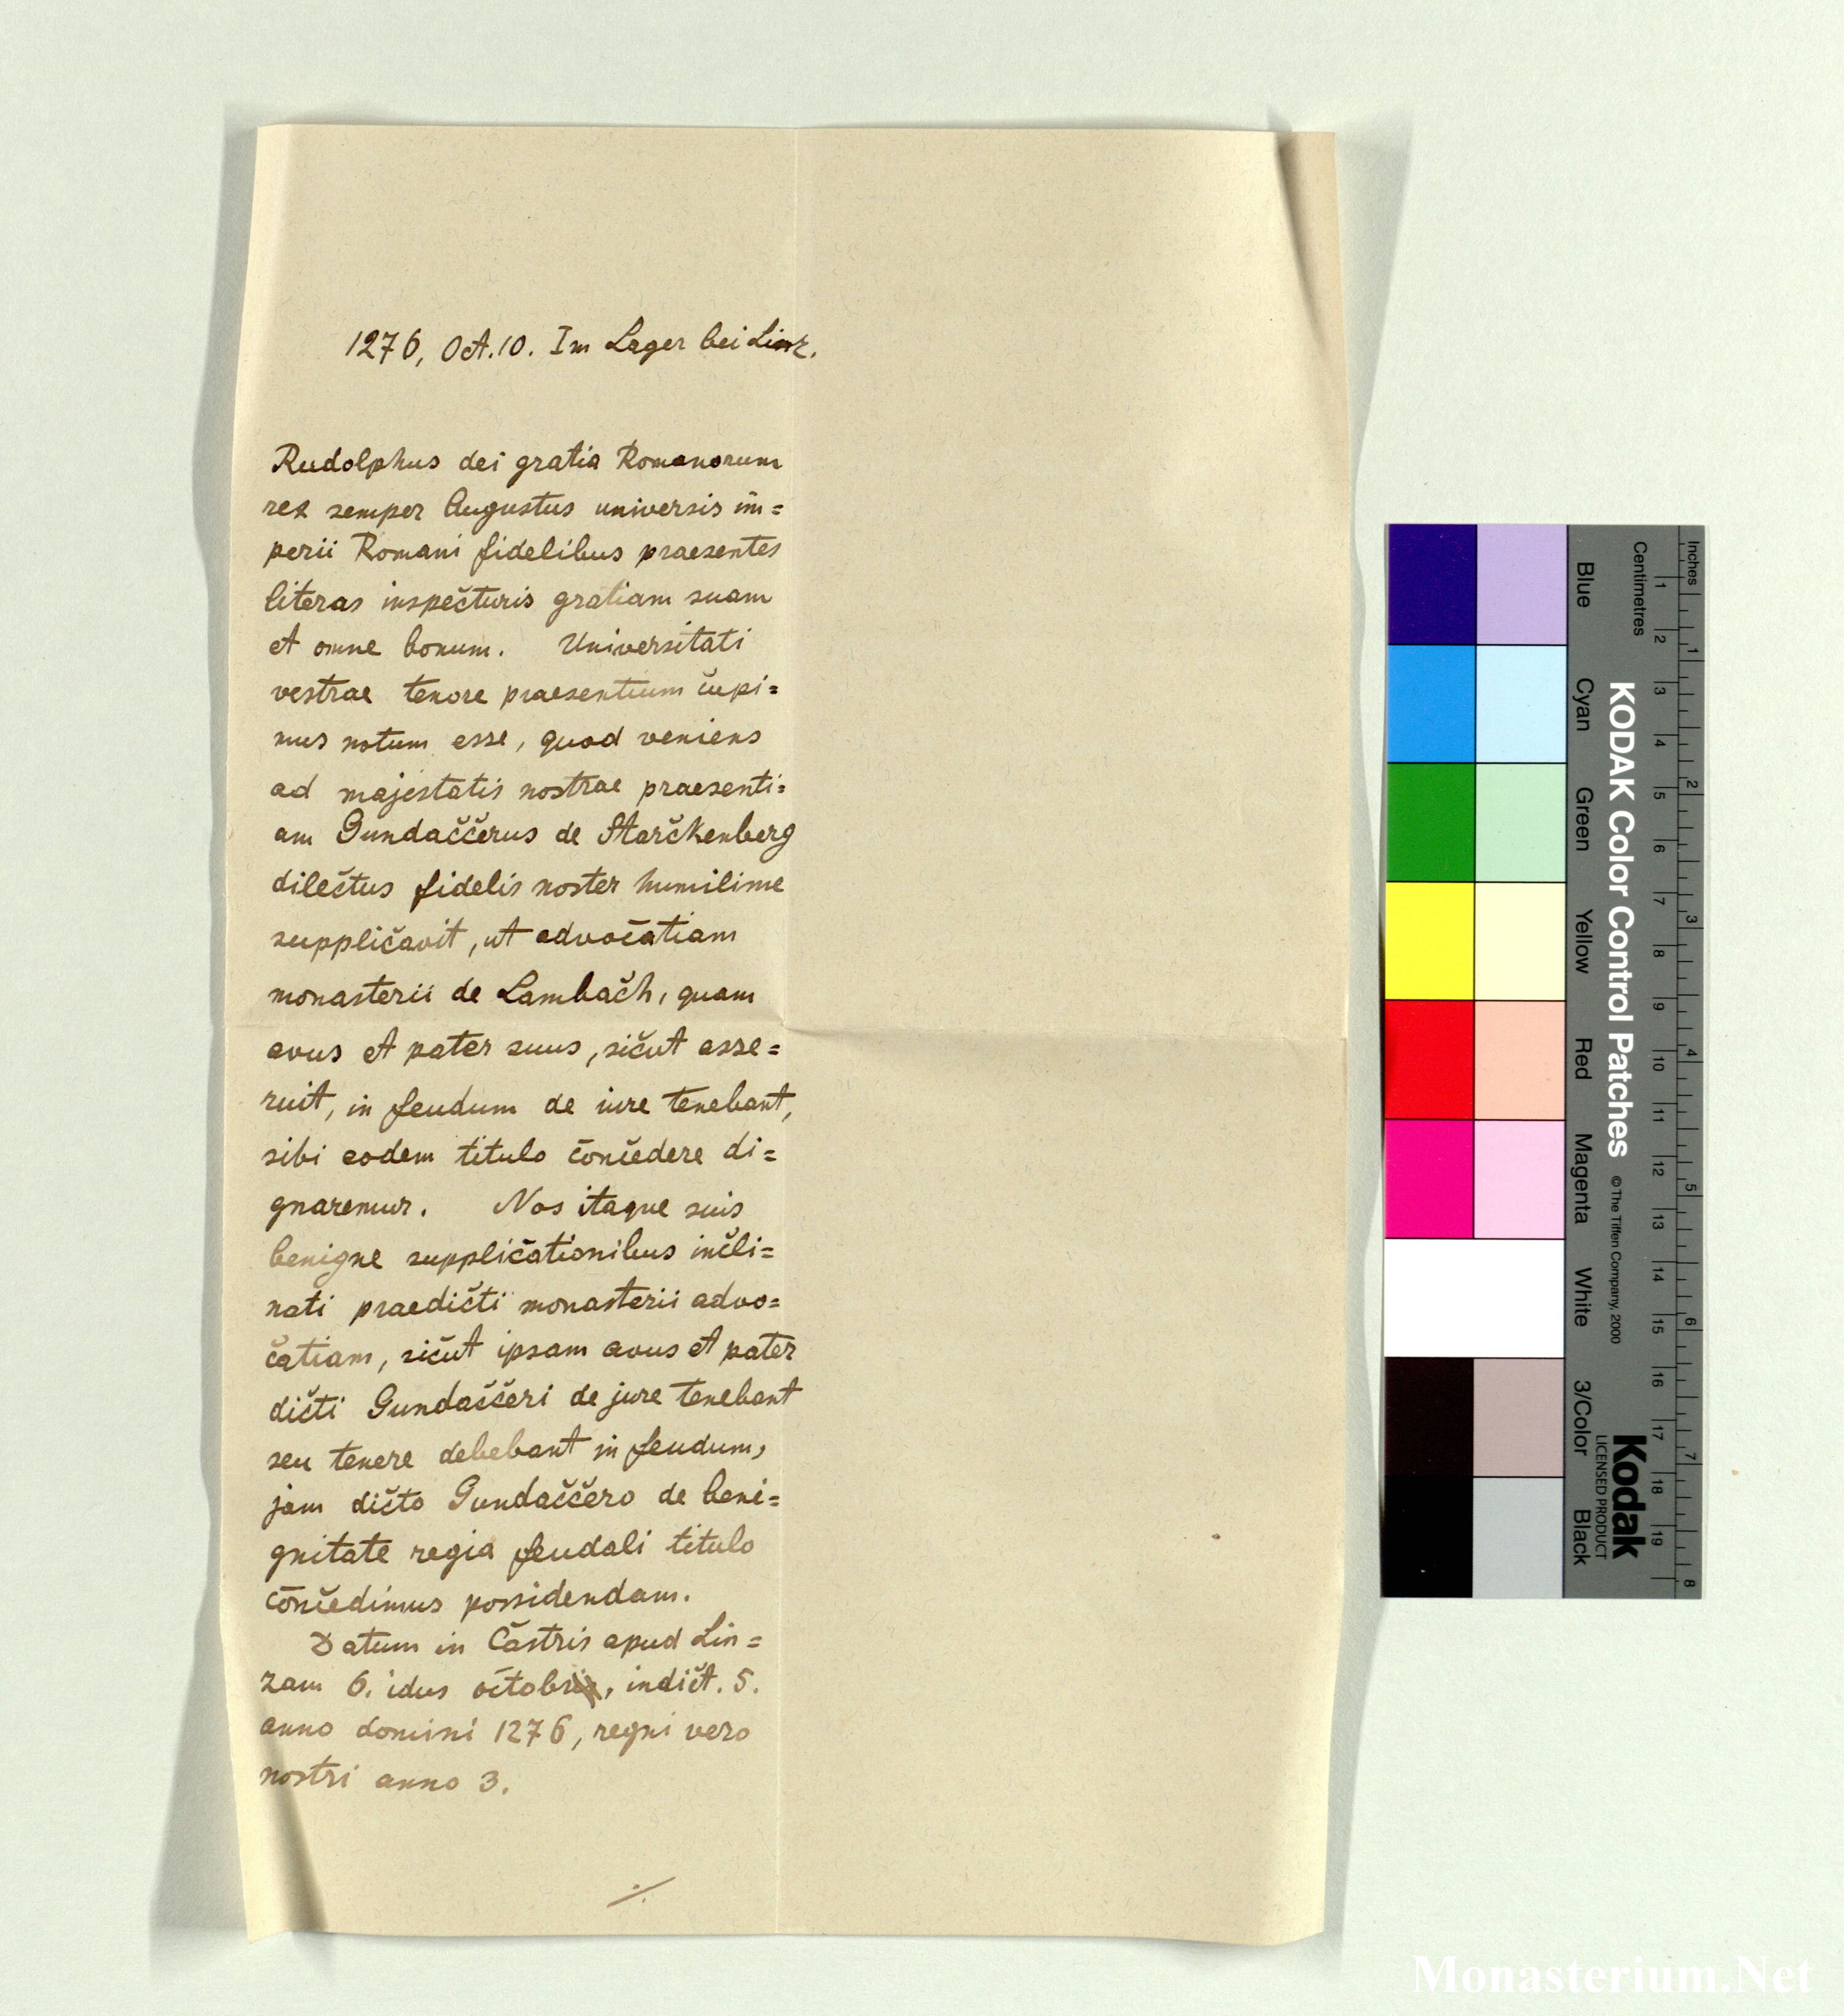 1276, Oct. 10. Im Lager bei Linz.
Rudolphus dei gratia Romanorum
rex semper Augustus universis im=
perii Romani fidelibus praesentes
literas inspecturis gratiam suam
et omne bonum. Universitati
vestrae tenore praesentium cupi=
mus notum esse, quod veniens
ad majestatis nostrae praesenti=
am Gundaccerus de Starckenberg
dilectus fidelis noster humilime
supplicavit, ut advocatiam
monasterii de Lambach, quam
avus et pater suus, sicut asse=
ruit, in feudum de iure tenebant,
sibi eodem titulo concedere di=
gnaremur. Nos itaque suis
benigne supplicationibus incli=
nati praedicti monasterii advo=
catiam, sicut ipsam avus et pater
dicti Gundacceri de jure tenebant
seu tenere debebant in feudum,
jam dicto Gundaccero de beni=
gnitate regia feudali titulo
concedimus possidendam.
Datum in Castris apud Lin=
zam 6. idus octobris, indict. 5.
anno domini 1276, regni vero
nostri anno 3.
./.
KODAK Color Control Patches © The Tiffen Company, 2000
Kodak
LICENSED PRODUCT
Inches 1 2 3 4 5 6 7 8
Centimetres 1 2 3 4 5 6 7 8 9 10 11 12 13 14 15 16 17 18 19
Blue Cyan Green Yellow Red Magenta White 3/Color Black
Monasterium.Net